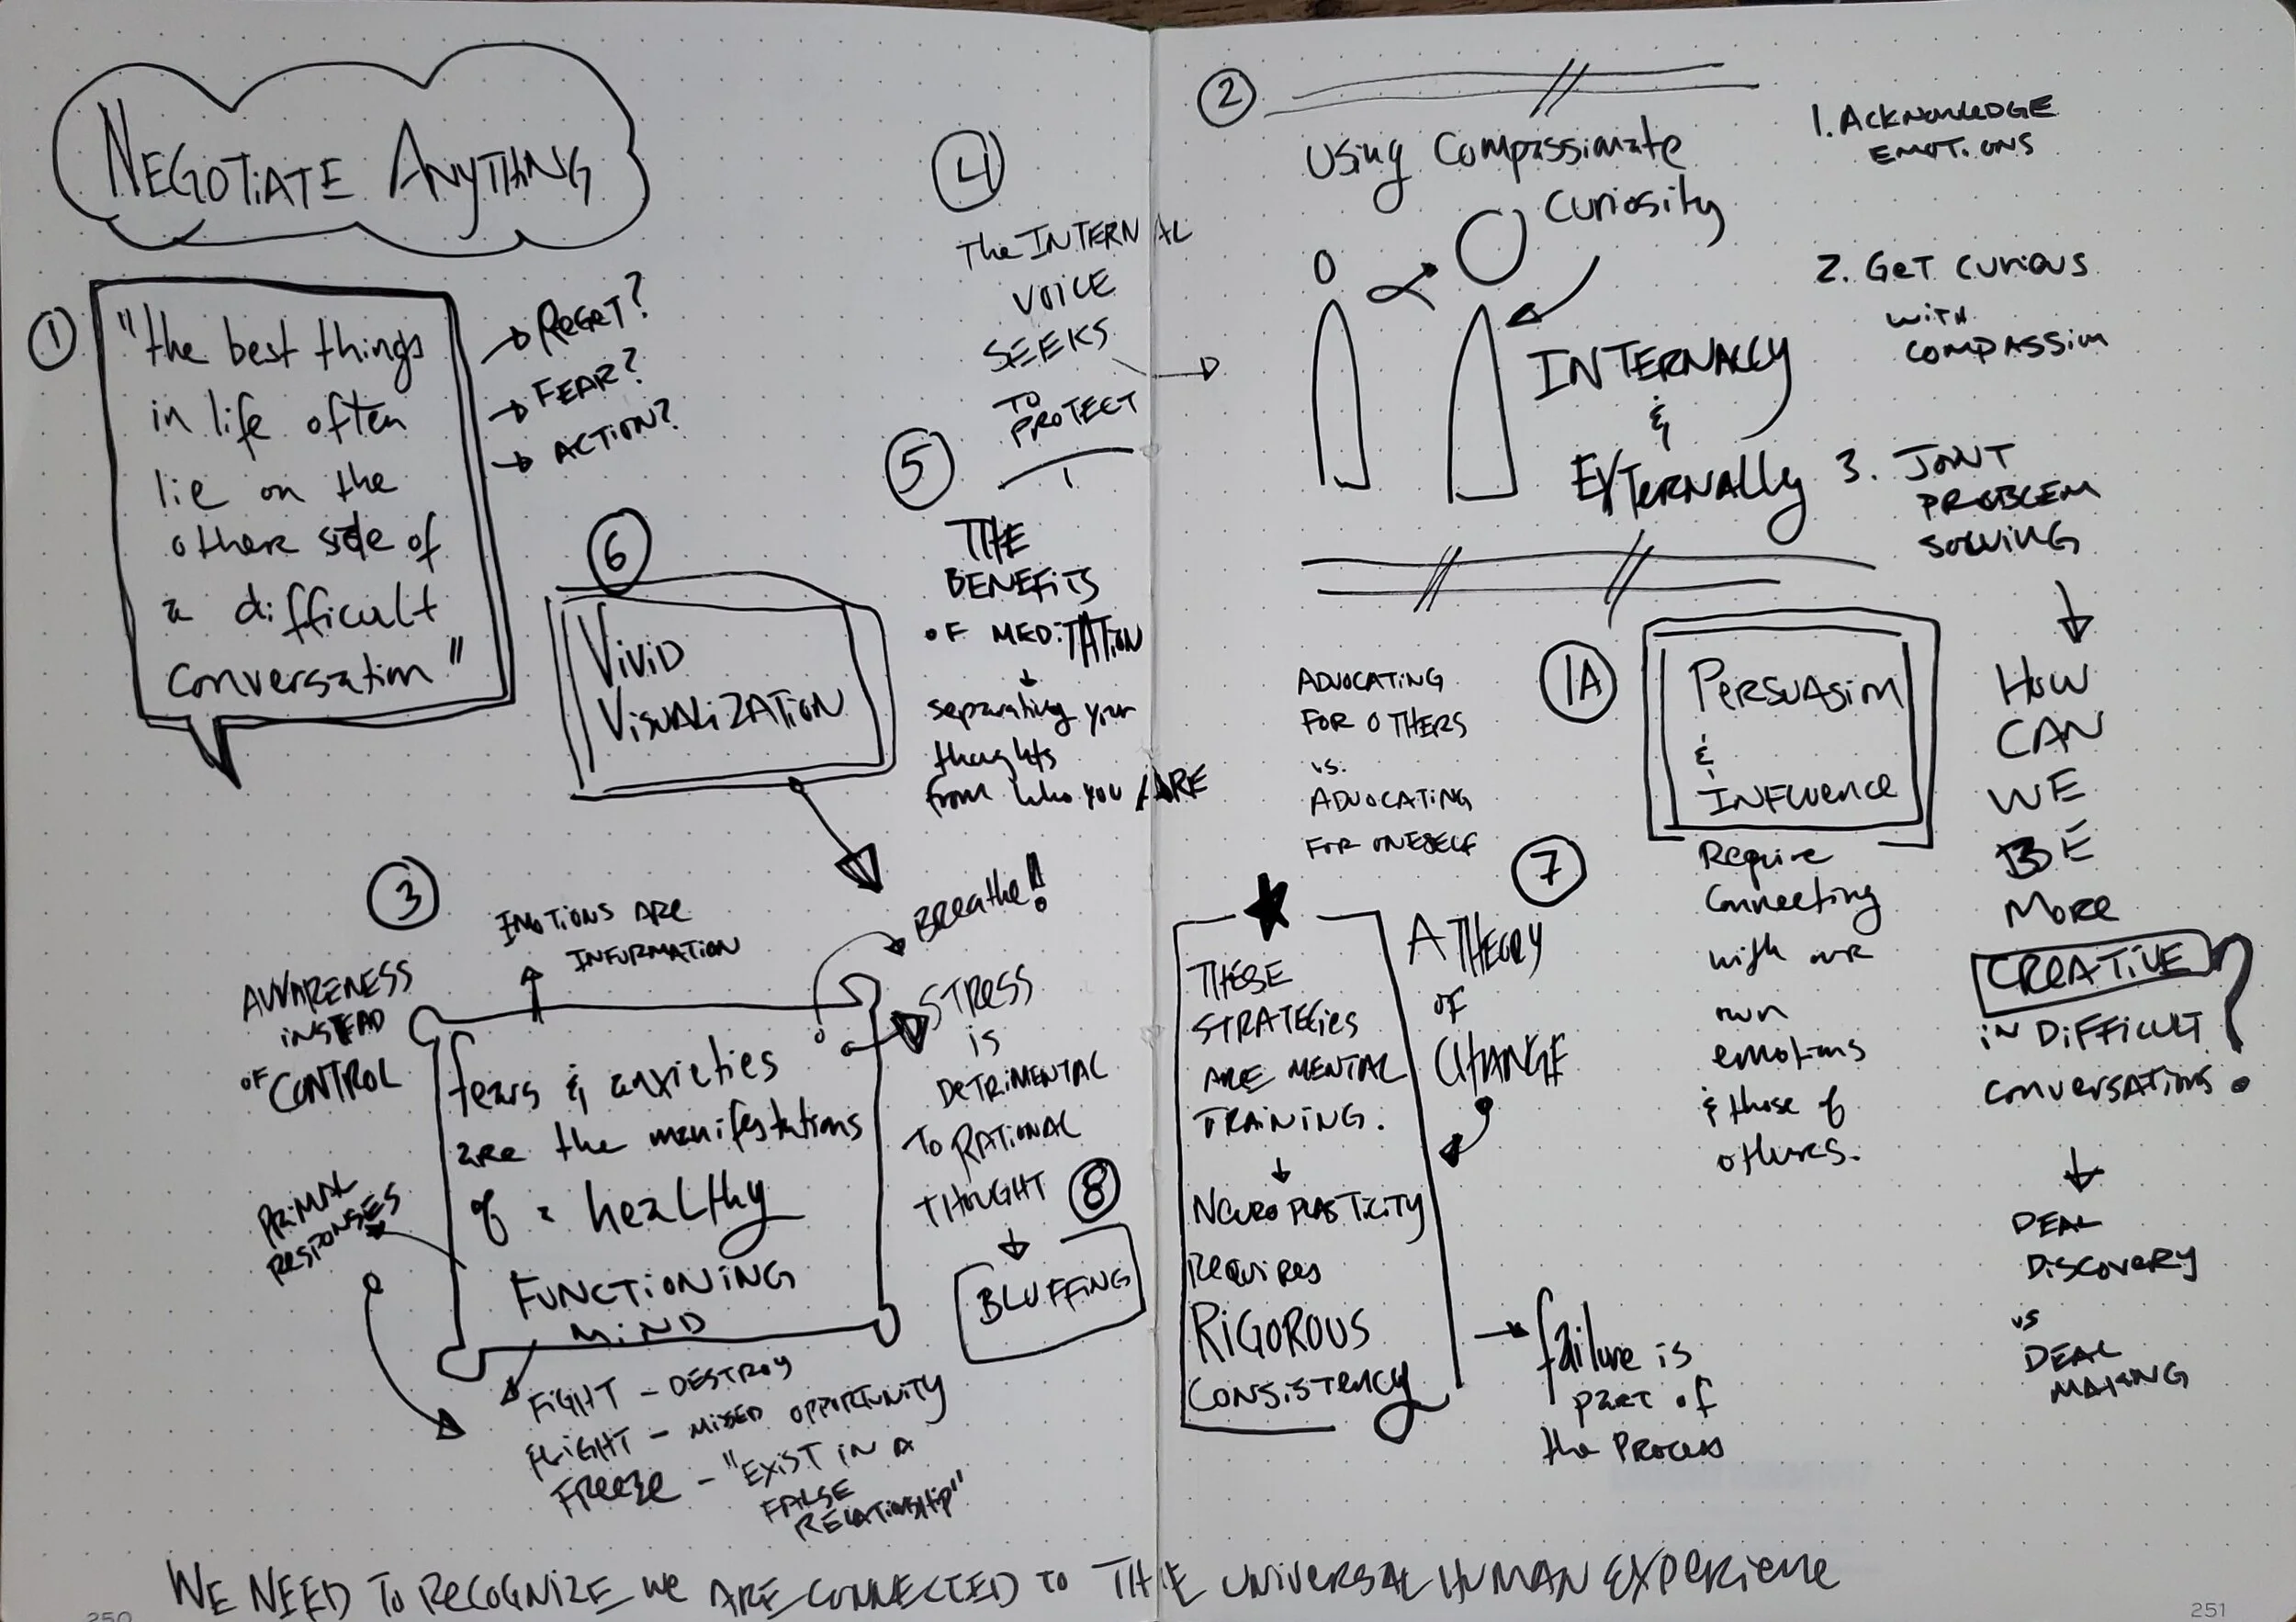 NEGOTIATE ANYTHING
1
"the best things
in life often
lie on the
other side of
a difficult
conversation"
REGRET?
FEAR?
ACTION?
4
The INTERNAL
VOICE
SEEKS
TO
PROTECT
5
THE
BENEFITS
OF MEDITATION
separating your
thoughts
from who you ARE
6
VIVID
VISUALIZATION
3
AWARENESS
INSTEAD
OF CONTROL
EMOTIONS ARE
INFORMATION
Breathe!!
fears & anxieties
are the manifestations
of a healthy
FUNCTIONING
MIND
STRESS
is
DETRIMENTAL
TO RATIONAL
THOUGHT
8
BLUFFING
PRIMAL
RESPONSES
FIGHT - DESTROY
FLIGHT - MISSED OPPORTUNITY
FREEZE - "EXIST IN A
FALSE
RELATIONSHIP"
2
Using Compassionate
Curiosity
INTERNALLY
&
EXTERNALLY
1. ACKNOWLEDGE
EMOTIONS
2. GET CURIOUS
WITH
COMPASSION
3. JOINT
PROBLEM
SOLVING
HOW
CAN
WE
BE
MORE
CREATIVE
IN DIFFICULT
CONVERSATIONS?
DEAL
DISCOVERY
vs
DEAL
MAKING
1A
PERSUASION
&
INFLUENCE
Require
Connecting
with our
own
emotions
& those of
others.
ADVOCATING
FOR OTHERS
vs.
ADVOCATING
FOR ONESELF
7
A THEORY
OF
CHANGE
THESE
STRATEGIES
ARE MENTAL
TRAINING.
NEUROPLASTICITY
REQUIRES
RIGOROUS
CONSISTENCY
failure is
part of
the PROCESS
WE NEED TO RECOGNIZE WE ARE CONNECTED TO THE UNIVERSAL HUMAN EXPERIENCE
250
251